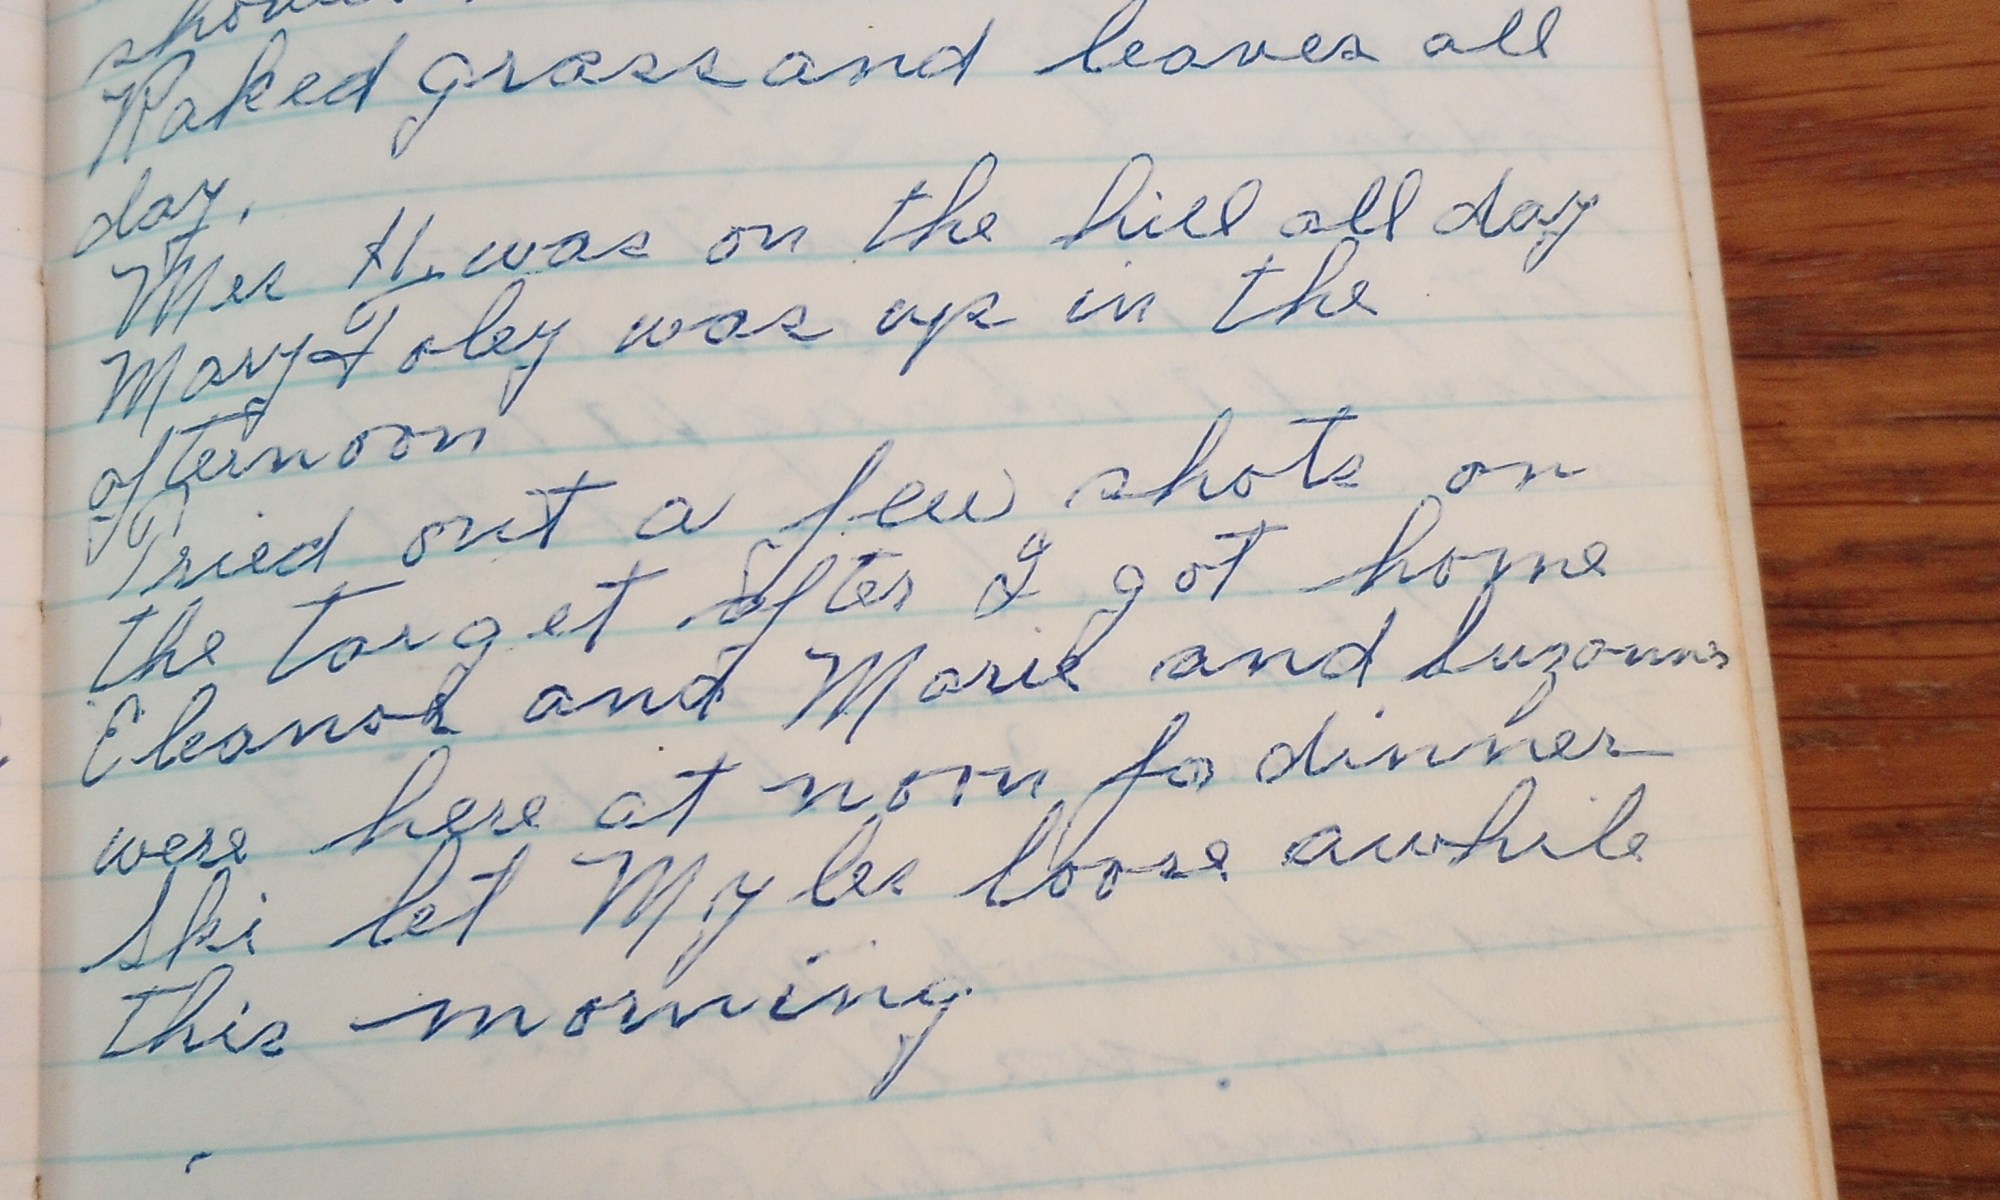 Raked grass and leaves all
day.
Mrs H. was on the hill all day
Mary Foley was up in the
afternoon
Tried out a few shots on
the target after I got home
Eleanor and Marie and Suzanne
were here at noon fo dinner
Ski let Myles loose awhile
this morning